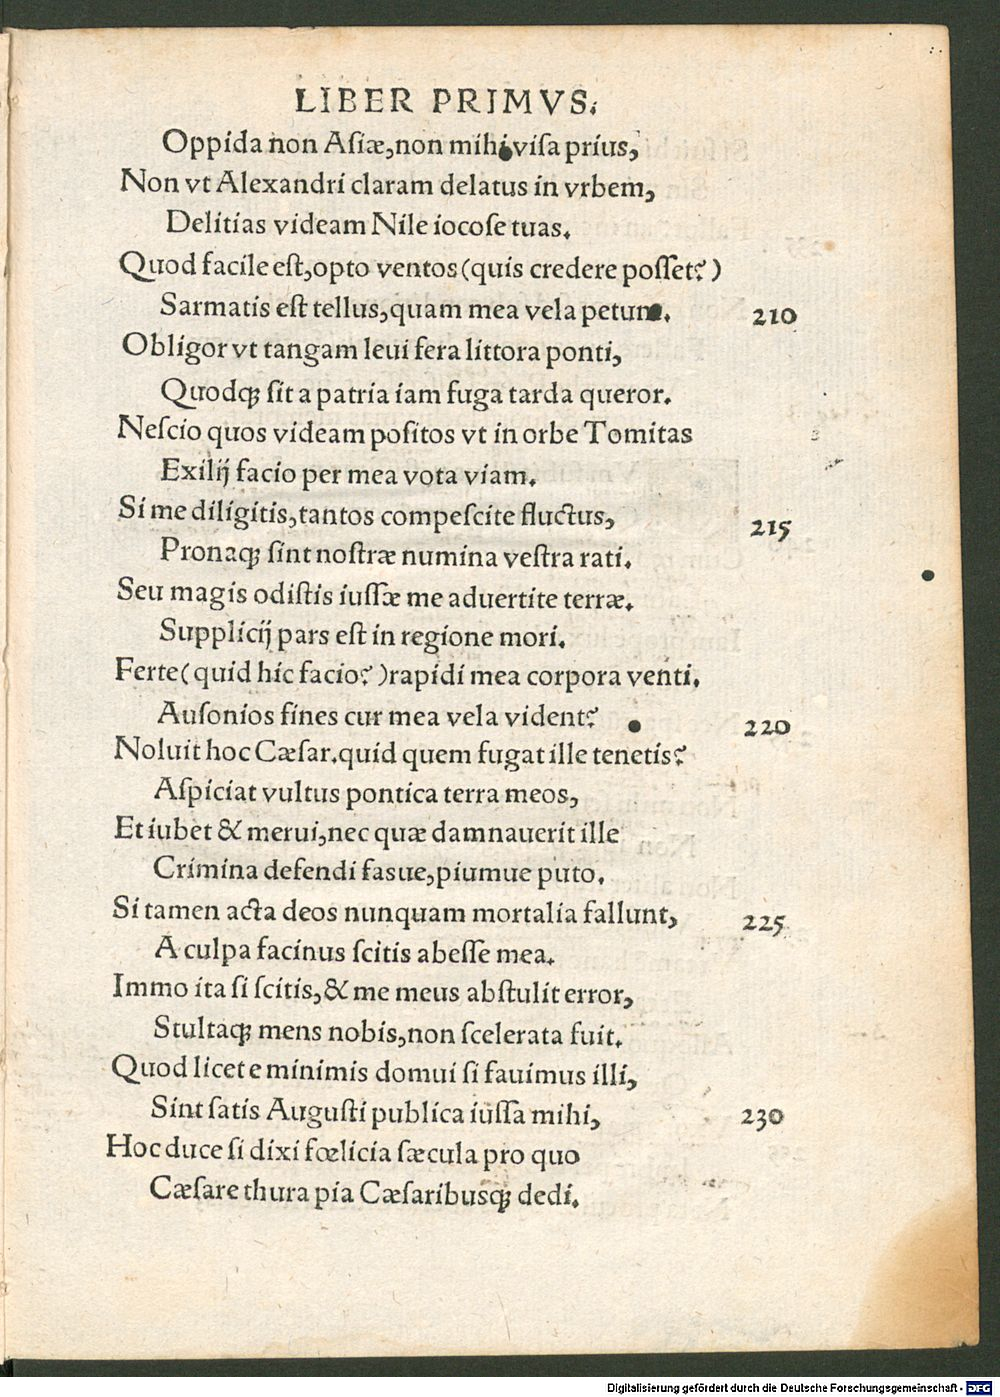 LIBER PRIMVS.
Oppida non Aſiæ, non mihi viſa prius,
Non vt Alexandri claram delatus in vrbem,
Delitias videam Nile iocoſe tuas.
Quod facile eſt, opto ventos (quis credere poſſet?)
Sarmatis eſt tellus, quam mea vela petunt. 210
Obligor vt tangam leui fera littora ponti,
Quodq; ſit a patria iam fuga tarda queror.
Neſcio quos videam poſitos vt in orbe Tomitas
Exilij facio per mea vota viam.
Si me diligitis, tantos compeſcite fluctus, 215
Pronaq; ſint noſtræ numina veſtra rati.
Seu magis odiſtis iuſſæ me aduertite terræ.
Supplicij pars eſt in regione mori.
Ferte (quid hic facio?) rapidi mea corpora venti.
Auſonios fines cur mea vela vident? 220
Noluit hoc Cæſar. quid quem fugat ille tenetis?
Aſpiciat vultus pontica terra meos,
Et iubet & merui, nec quæ damnauerit ille
Crimina defendi fasue, piumue puto.
Si tamen acta deos nunquam mortalia fallunt, 225
A culpa facinus ſcitis abeſſe mea.
Immo ita ſi ſcitis, & me meus abſtulit error,
Stultaq; mens nobis, non ſcelerata fuit.
Quod licet e minimis domui ſi fauimus illi,
Sint ſatis Auguſti publica iuſſa mihi, 230
Hoc duce ſi dixi fœlicia ſæcula pro quo
Cæſare thura pia Cæſaribusq; dedi.
Digitalisierung gefördert durch die Deutsche Forschungsgemeinschaft - DFG